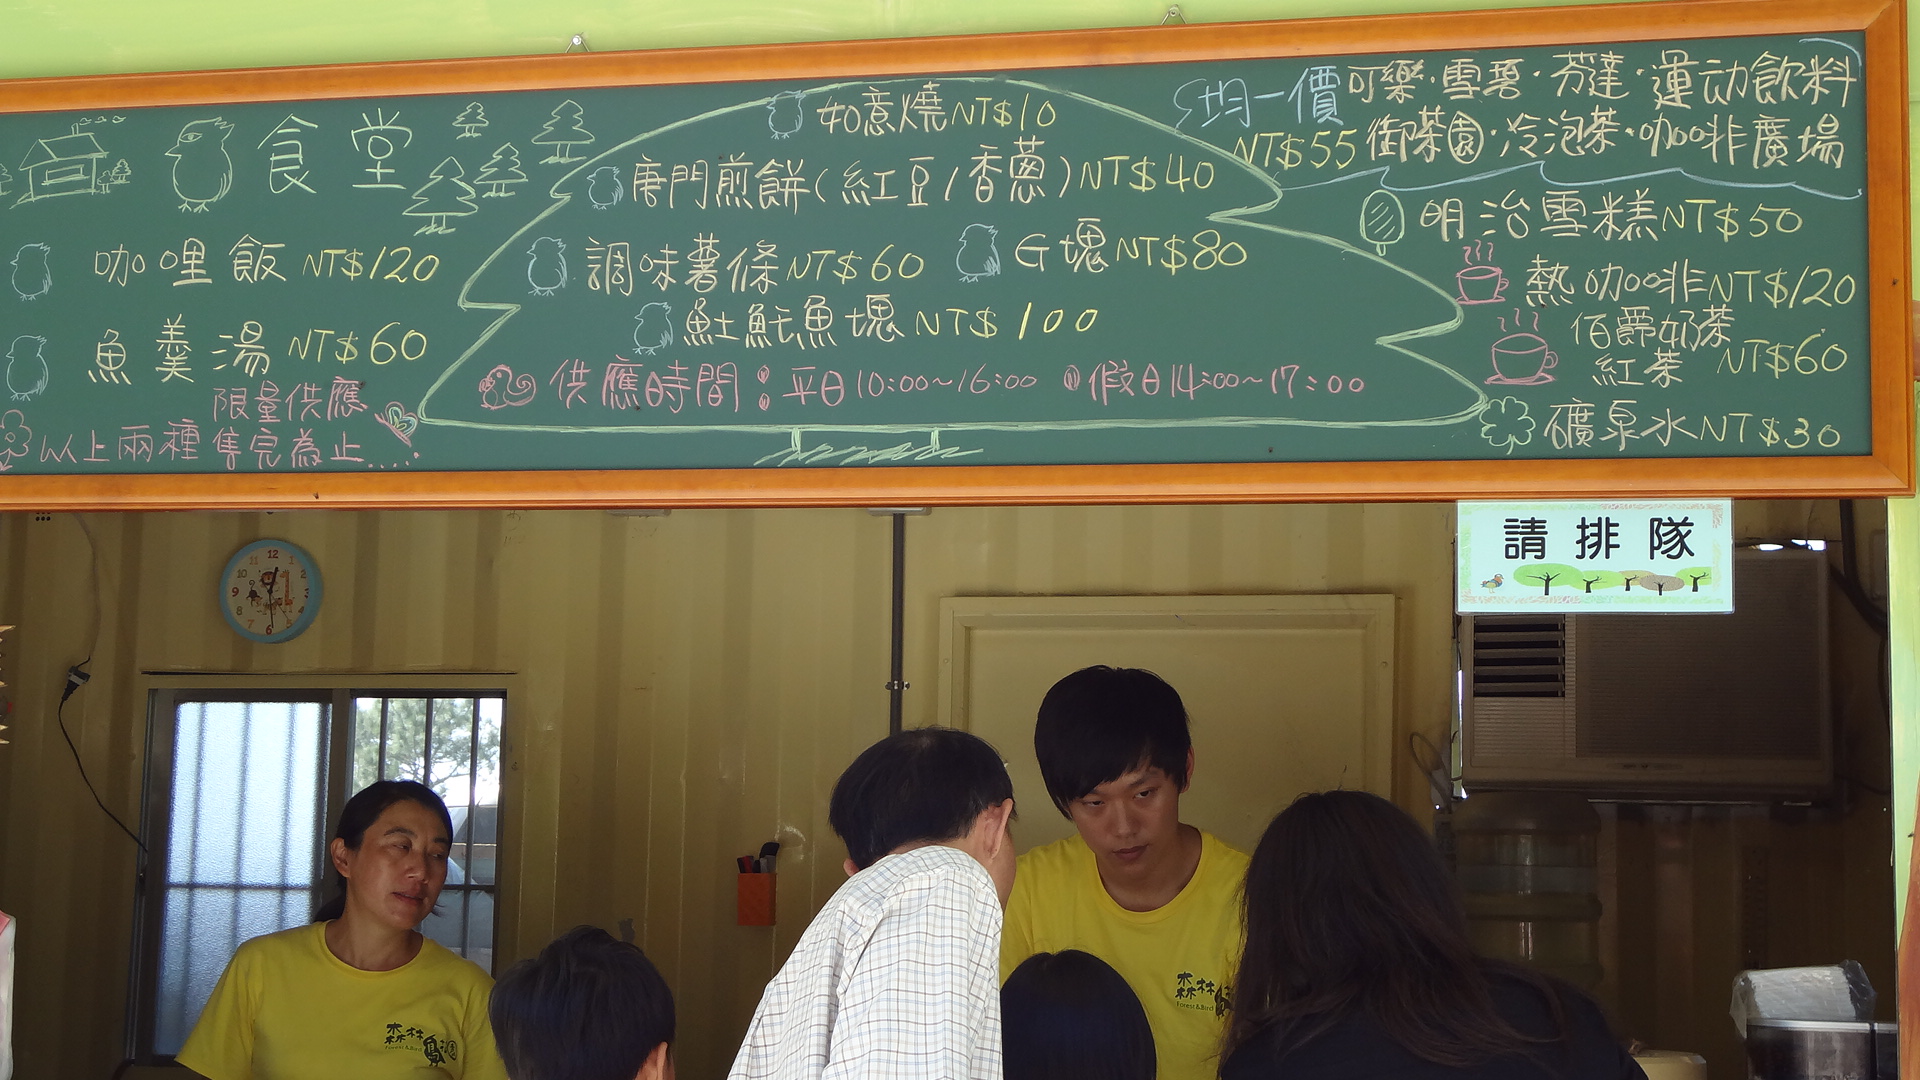 食堂
咖哩飯 NT$120
魚羹湯 NT$60
限量供應
以上兩種售完為止....
如意燒NT$10
唐門煎餅(紅豆/香蔥)NT$40
調味薯條NT$60
G塊NT$80
魠魚塊NT$100
供應時間：平日10:00~16:00 假日14:00~17:00
均一價
NT$55
可樂·雪碧·芬達·運动飲料
御茶園·冷泡茶·咖啡廣場
明治雪糕NT$50
熱咖啡NT$120
伯爵奶茶
紅茶
NT$60
礦泉水NT$30
請排隊
12
森林鳥
Forest & Bird
森林
Forest & Bird